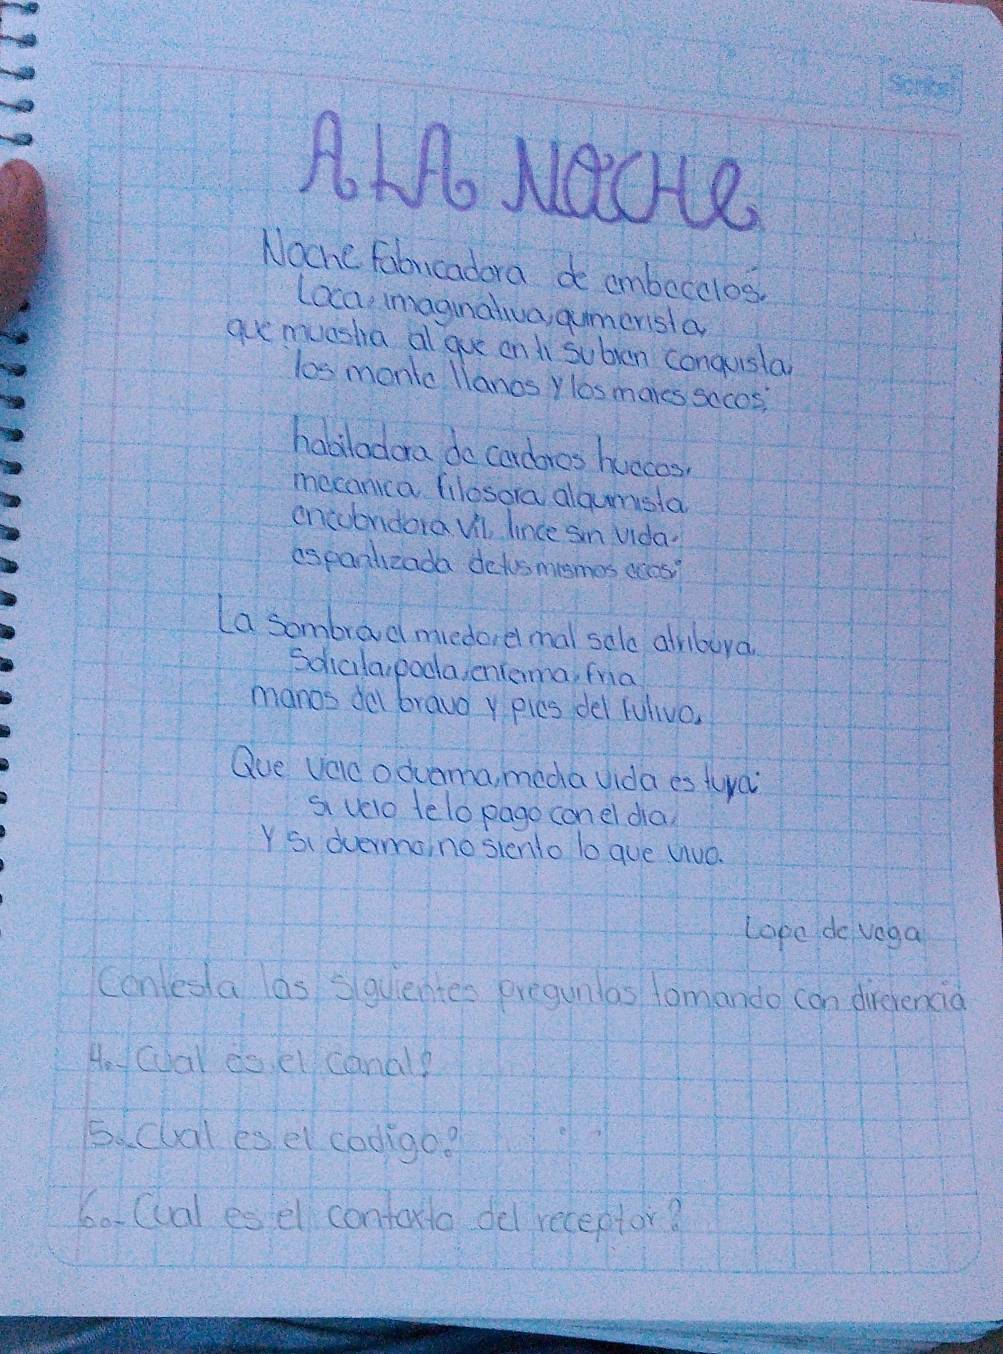 Scribe
A LA NOCHE
Noche fabricadora de embecelos.
Loca, imaginativa, quimerista,
que muestra al que en ti su bien conquista,
los monte llanos y los mares secos;
habiladora de cerdoros huecos,
mecanica, filosora, alquimista
encubridora vil, lince sin vida.
espantizada de tus mismos ecos;
La sombra, el miedo, el mal sele atribuya,
Solicita, poeta, enferma, fria
manos del bravo y pies del fulivo,
Que vele o duerma, media vida es tuya:
si velo te lo pago con el dia,
Y si duermo, no siento lo que vivo.
Lope de Vega
Contesta las siguientes preguntas tomando con direrencia
4.- Cual es el canal?
5.- Cual es el codigo?
6.- Cual es el contexto del receptor?